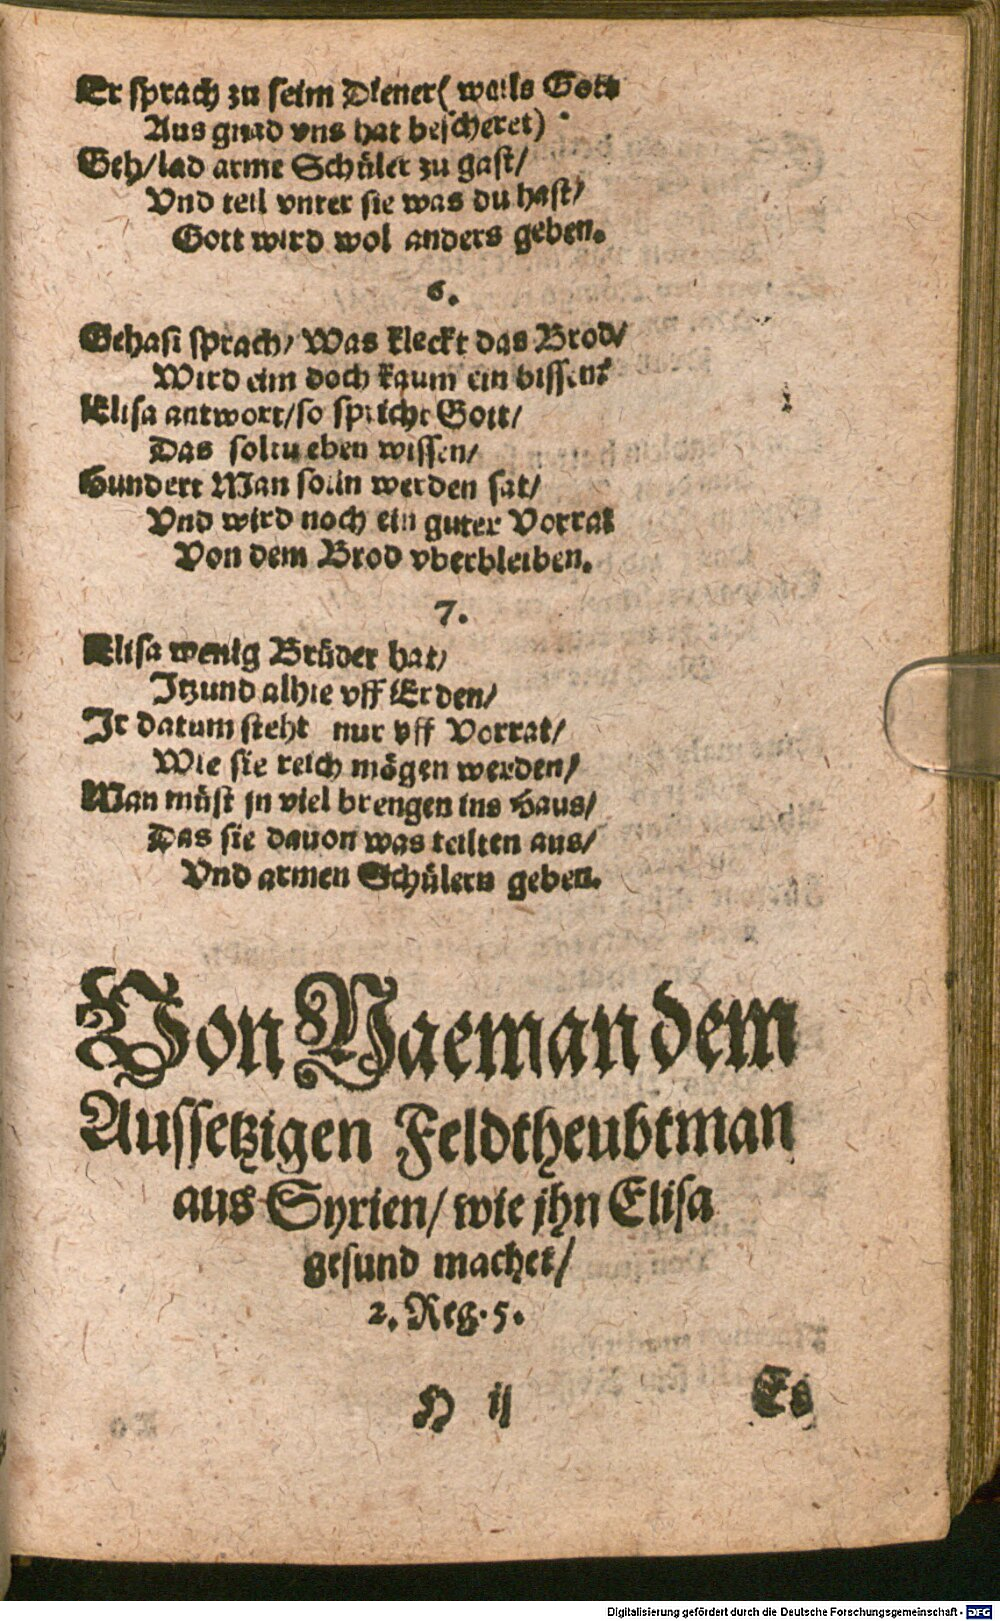 Er sprach zu seim Diener( weils Gott
Aus gnad vns hat bescheret)
Geh/lad arme Schüler zu gast/
Vnd teil vnter sie was du hast/
Gott wird wol anders geben.
6.
Gehasi sprach/ Was kleckt das Brod/
Wird eim doch kaum ein bissen?
Elisa antwort/so spricht Gott/
Das soltu eben wissen/
Hundert Man solln werden sat/
Vnd wird noch ein guter Vorrat
Von dem Brod vberbleiben.
7.
Elisa wenig Brüder hat/
Itzund alhie vff Erden/
Ir datum steht nur vff Vorrat/
Wie sie reich mögen werden/
Man müst jn viel brengen ins Haus/
Das sie dauon was teilten aus/
Vnd armen Schülern geben.
Von Naeman dem
Aussetzigen Feldtheubtman
aus Syrien/ wie jhn Elisa
gesund machet/
2. Reg. 5.
H ij
Es
Digitalisierung gefördert durch die Deutsche Forschungsgemeinschaft - DFG